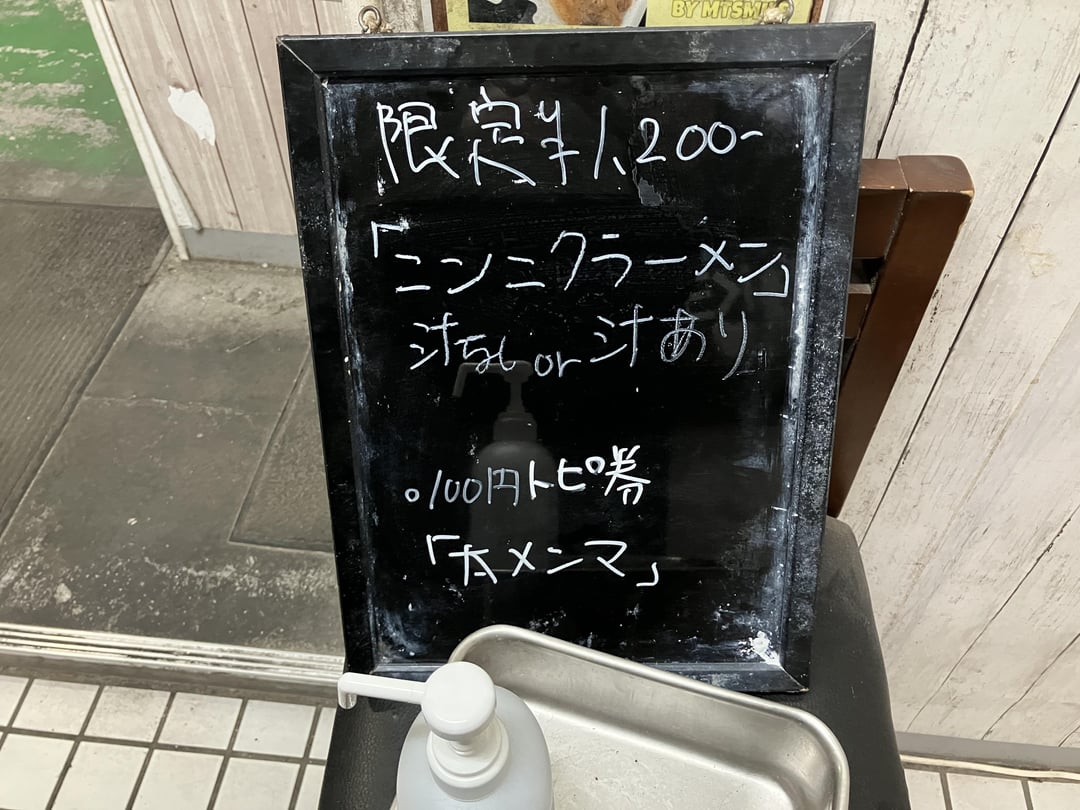 BY MTSMILE
限定¥1,200-
「ニンニクラーメン」
汁なし or 汁あり
。100円トピ券
「太メンマ」